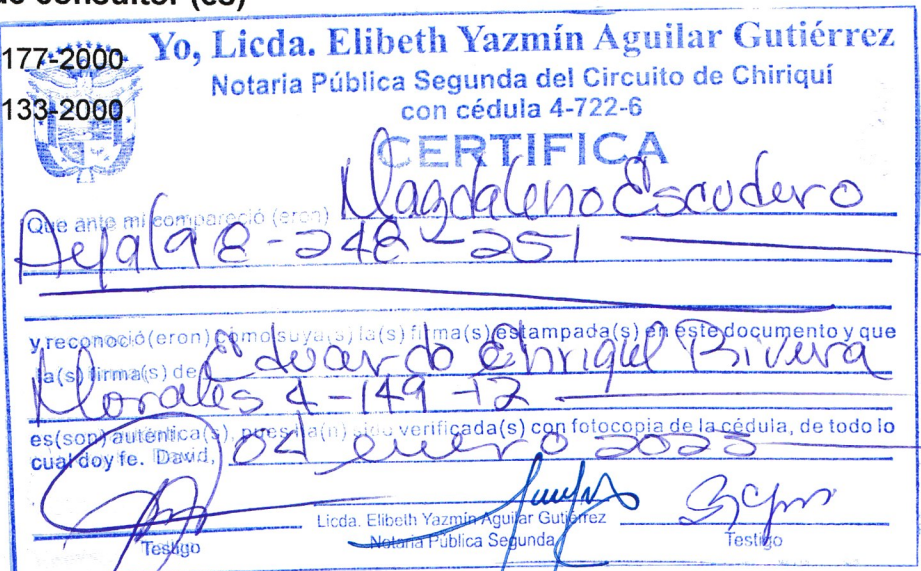 de consultor (es)
177-2000
133-2000
Yo, Licda. Elibeth Yazmín Aguilar Gutiérrez
Notaria Pública Segunda del Circuito de Chiriquí
con cédula 4-722-6
CERTIFICA
Que ante mi compareció (eron) Magdaleno Escudero
Ayala 8-248-251
y reconoció(eron) como suya(s) la(s) firma(s) estampada(s) en este documento y que
la(s) firma(s) de Eduardo Enrique Rivera
Morales 4-149-12
es(son) auténtica(s), pues ha(n) sido verificada(s) con fotocopia de la cédula, de todo lo
cual doy fe. David, 04 enero 2023
Licda. Elibeth Yazmín Aguilar Gutiérrez
Testigo Notaria Pública Segunda Testigo